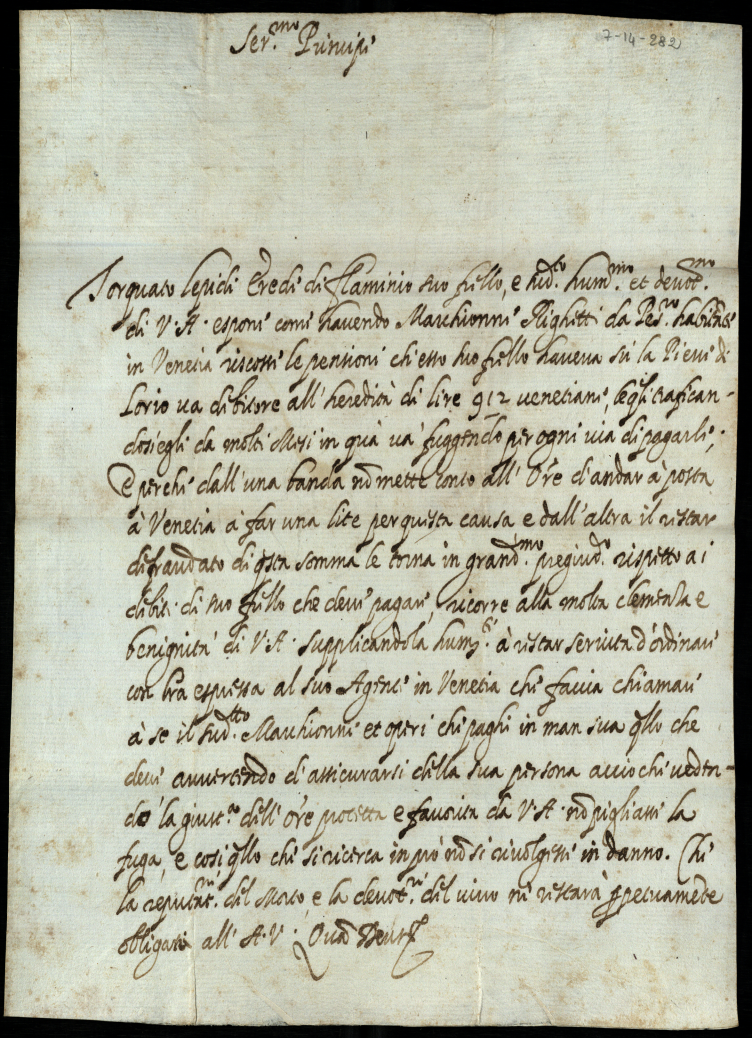 Ser.mo Principe
7-14-282
Torquato Lepidi Erede di Flaminio suo fr̃ello, e hum.mo et devot.mo
di V. A. espone come havendo Marchionne Righetti da Pes.ro habitãte
in Venetia riscosse le pensioni ch'esso suo fr̃ello haveva sù la Pieve di
Lorio va debitore all'heredità di lire 912 venetiane, le qli trafican-
dosi egli da molti Mesi in quà và fuggendo per ogni via di pagarle,
E perche dall'una banda nõ mette conto all'Ore d'andar à posta
à Venetia à far una lite per questa causa e dall'altra il restar
defraudato di qsta somma le torna in grand.mo pregiud.o rispetto a i
debiti di suo fr̃ello che deve pagare, ricorre alla molta clemenza e
benignità di V. A. supplicandola hum.te à restar servita d'ordinare
con lr̃a espressa al suo Agente in Venetia che faccia chiamare
à se il sud.tto Marchionne et operi che paghi in man sua qllo che
deve avvertendo d'assicurarsi della sua persona accio che veden-
do la giust.a dell'Ore protetta e favorita da V. A. nõ pigliasse la
fuga, e cosi qllo che si ricerca in prò nõ si rivolgesse in danno. Che
la reputat.ne del Morto, e la devot.ne del vivo ne restarà perpetuamẽte
obligata all'A. V. Quã Deus